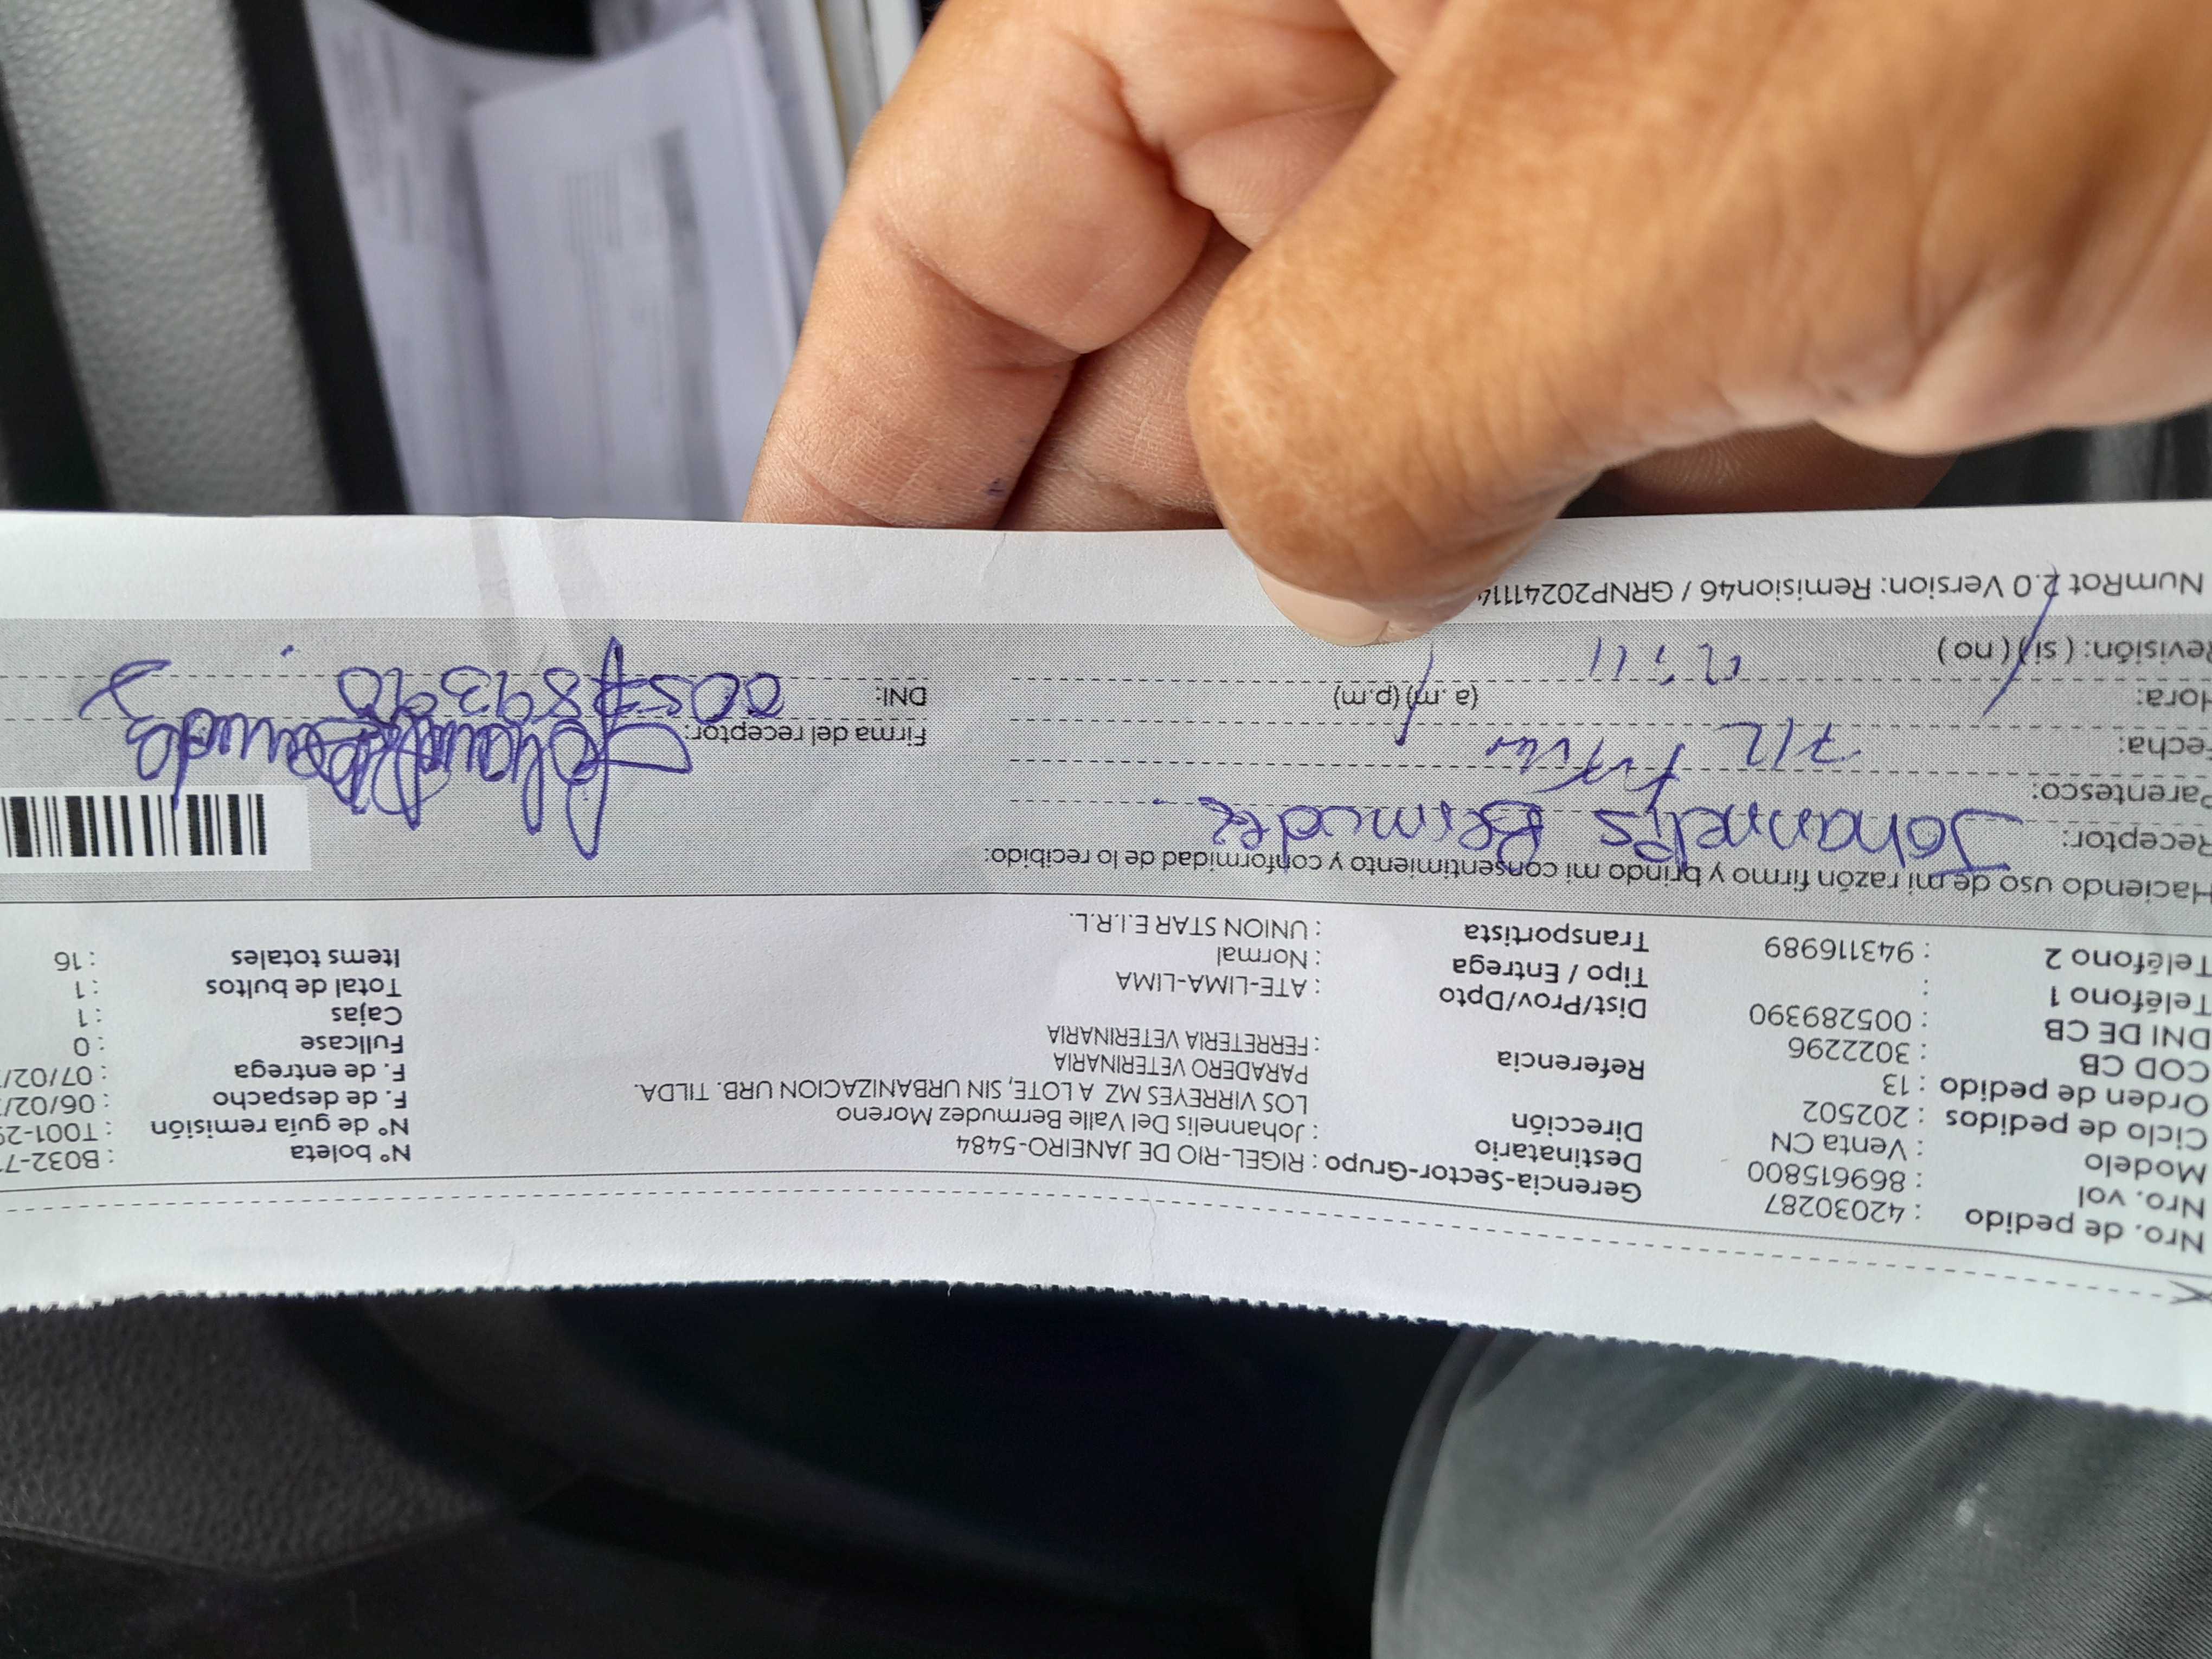 Nro. de pedido : 42030287
Nro. vol : 869615800
Modelo : Venta CN
Ciclo de pedidos : 202502
Orden de pedido : 13
COD CB : 3022296
DNI DE CB : 005289390
Teléfono 1 :
Teléfono 2 : 943116989
Gerencia-Sector-Grupo : RIGEL-RIO DE JANEIRO-5484
Destinatario : Johannelis Del Valle Bermudez Moreno
Dirección LOS VIRREYES MZ A LOTE, SIN URBANIZACION URB. TILDA.
PARADERO VETERINARIA
Referencia : FERRETERIA VETERINARIA
Dist/Prov/Dpto : ATE-LIMA-LIMA
Tipo / Entrega : Normal
Transportista : UNION STAR E.I.R.L.
N° boleta : B032-7
N° de guía remisión : T001-29
F. de despacho : 06/02/
F. de entrega : 07/02/
Fullcase : 0
Cajas : 1
Total de bultos : 1
Items totales : 16
Haciendo uso de mi razón firmo y brindo mi consentimiento y conformidad de lo recibido:
Receptor: Johannelis Bermudez
Parentesco:
Fecha: 7/2
Hora: (a.m) (p.m)
Revisión: ( si ) ( no )
Firma del receptor:
DNI:
NumRot 2.0 Version: Remision46 / GRNP20241114